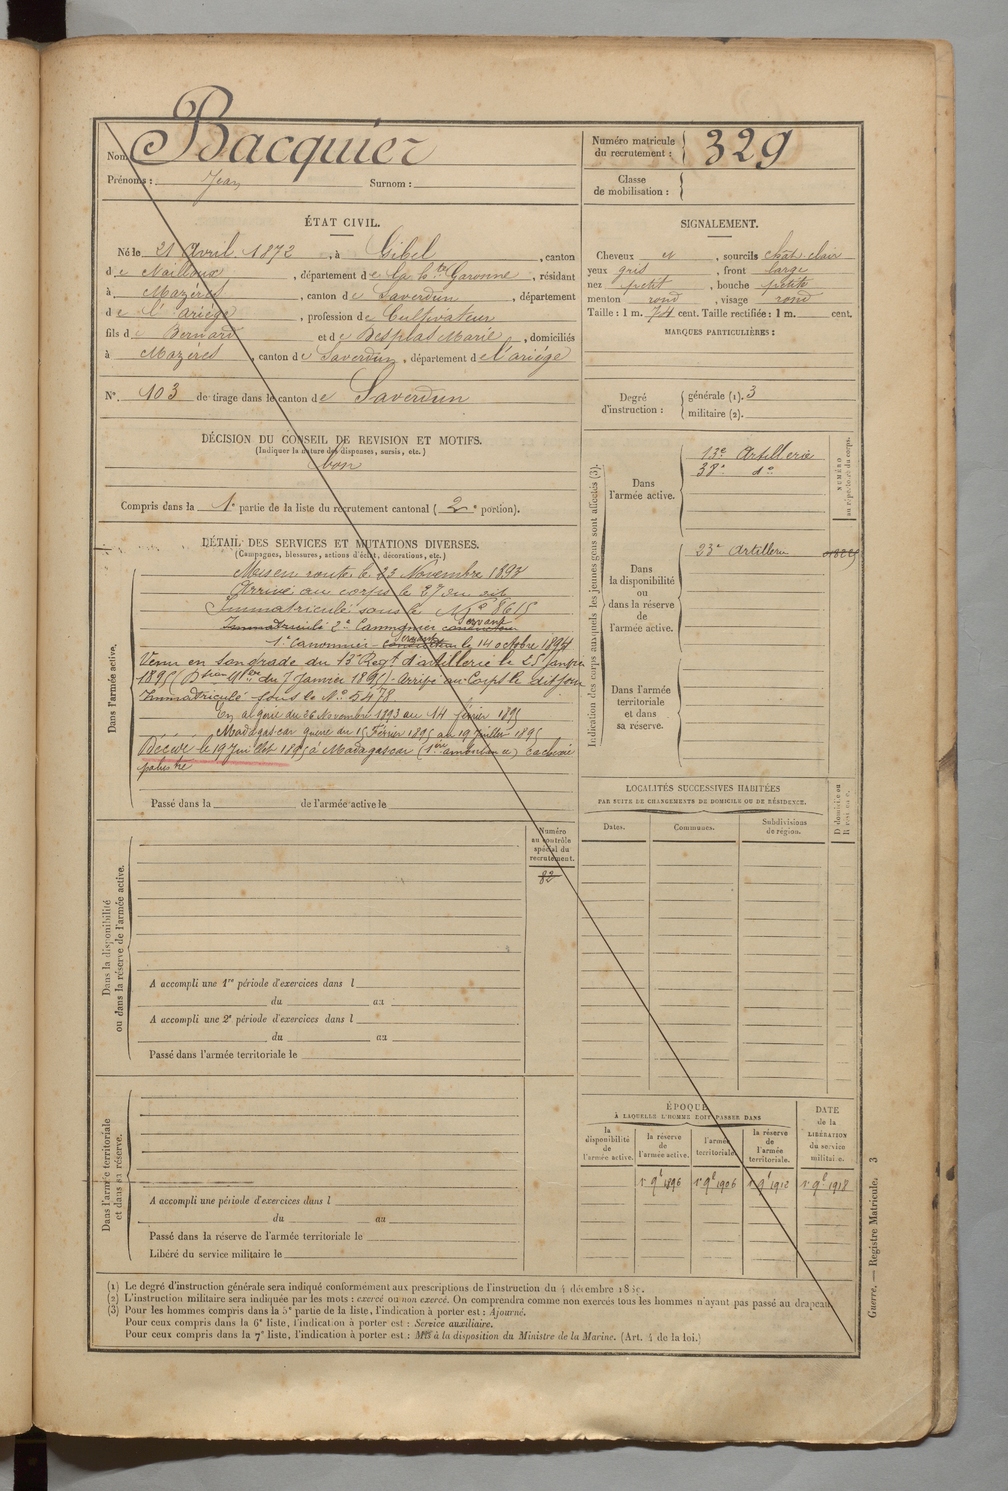 Nom Bacquier
Prénoms : Jean Surnom :
Numéro matricule du recrutement : 329
Classe de mobilisation :
ÉTAT CIVIL.
Né le 21 Avril 1872, à Gibel, canton
de Nailloux, département de la Hte Garonne, résidant
à Mazères, canton de Saverdun, département
de l'ariège, profession de Cultivateur
fils de Bernard et de Desplas Marie, domiciliés
à Mazères, canton de Saverdun, département de l'ariège
N°. 103 de tirage dans le canton de Saverdun
SIGNALEMENT.
Cheveux et, sourcils chat. clair
yeux gris, front large
nez petit, bouche petite
menton rond, visage rond
Taille : 1 m. 74 cent. Taille rectifiée : 1 m. cent.
MARQUES PARTICULIÈRES :
Degré d'instruction : générale (1). 3
militaire (2).
DÉCISION DU CONSEIL DE REVISION ET MOTIFS.
(Indiquer la nature des dispenses, sursis, etc.)
bon
Compris dans la 1e partie de la liste du recrutement cantonal (2e portion).
DÉTAIL DES SERVICES ET MUTATIONS DIVERSES.
(Campagnes, blessures, actions d'éclat, décorations, etc.)
Dans l'armée active.
Mis en route le 23 Novembre 1893
Arrivé au corps le 27 du dit
Immatriculé sous le No 8615
Immatriculé 2e Canonnier servant
1e Canonnier servant le 14 octobre 1894
Venu en son grade du 13e Regt d'artillerie le 25 Janvier
1895 du 7 Janvier 1895) Arrivé au Corps le dit jour
Immatriculé sous le No 5478
En algérie du 26 Novembre 1893 au 14 février 1895
Madagascar guerre du 15 Février 1895 au 19 Juillet 1895
Décédé le 19 Juillet 1895 à Madagascar (1ère ambulance) cachexie
palustre
Passé dans la de l'armée active le
Indication des corps auxquels les jeunes gens sont affectés (3).
NUMÉRO au répertoire du corps.
Dans l'armée active.
13e Artillerie
38e do
Dans la disponibilité ou dans la réserve de l'armée active.
23e Artillerie
Dans l'armée territoriale et dans sa réserve.
LOCALITÉS SUCCESSIVES HABITÉES
PAR SUITE DE CHANGEMENTS DE DOMICILE OU DE RÉSIDENCE.
Dates. Communes. Subdivisions de région.
Numéro au contrôle spécial du recrutement.
82
Dans la disponibilité ou dans la réserve de l'armée active.
A accompli une 1re période d'exercices dans l
du au
A accompli une 2e période d'exercices dans l
du au
Passé dans l'armée territoriale le
Dans l'armée territoriale et dans sa réserve.
A accompli une période d'exercices dans l
du au
Passé dans la réserve de l'armée territoriale le
Libéré du service militaire le
ÉPOQUE
À LAQUELLE L'HOMME DOIT PASSER DANS
la disponibilité de l'armée active.
la réserve de l'armée active.
l'armée territoriale.
la réserve de l'armée territoriale.
DATE de la LIBÉRATION du service militaire.
1r 9b 1896 1r 9b 1906 1r 9b 1912 1r 9b 1918
(1) Le degré d'instruction générale sera indiqué conformément aux prescriptions de l'instruction du 4 décembre
(2) L'instruction militaire sera indiquée par les mots : exercé ou non exercé. On comprendra comme non exercés tous les hommes n'ayant pas passé au drapeau.
(3) Pour les hommes compris dans la 5e partie de la liste, l'indication à porter est : Ajourné.
Pour ceux compris dans la 6e liste, l'indication à porter est : Service auxiliaire.
Pour ceux compris dans la 7e liste, l'indication à porter est : Mis à la disposition du Ministre de la Marine. (Art. 4 de la loi.)
Guerre. — Registre Matricule. 3